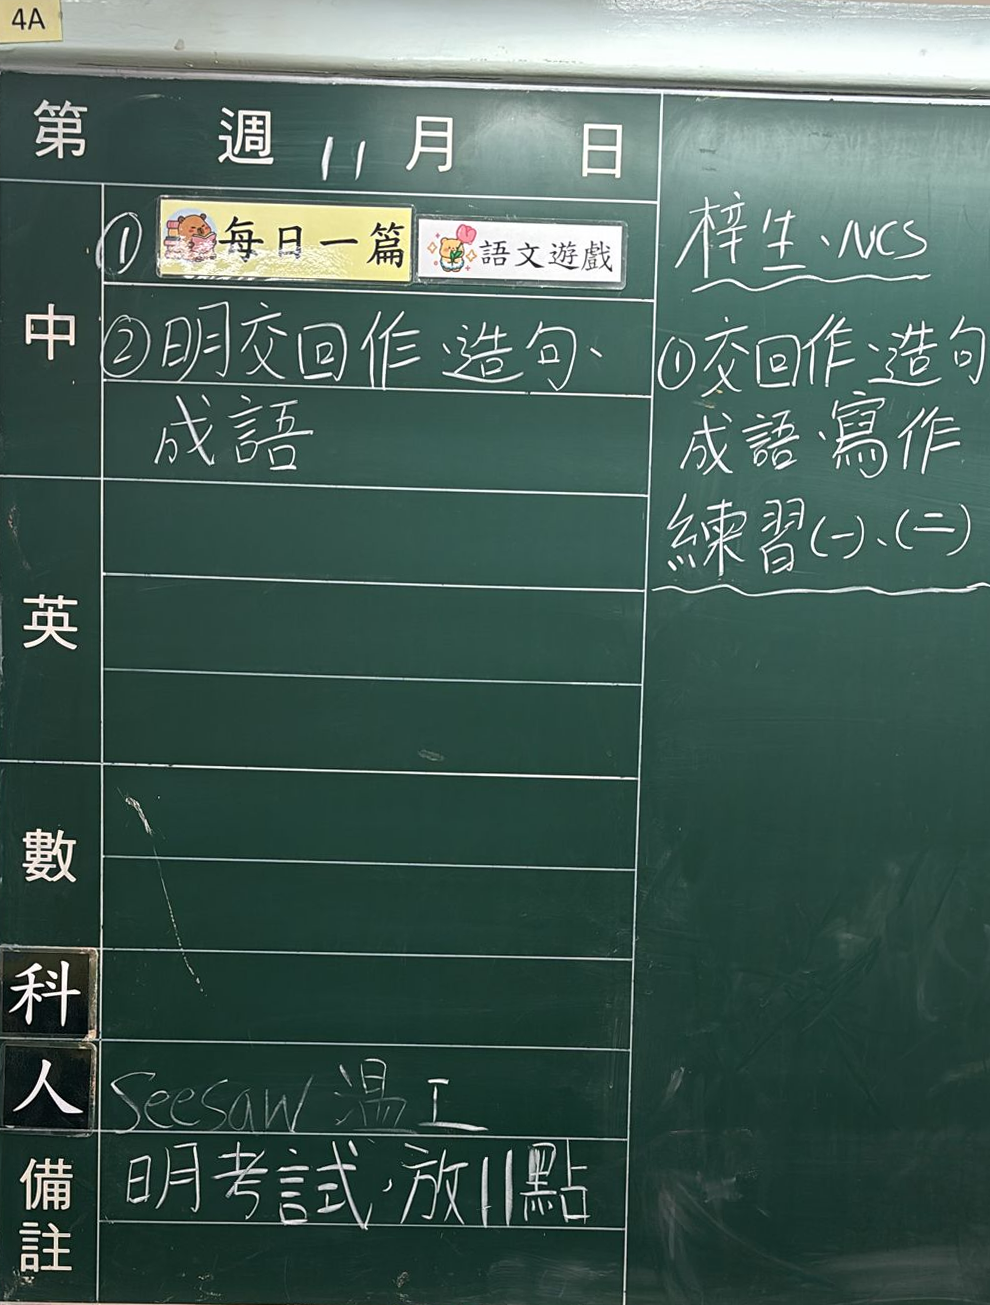 4A
第 週 11 月 日
中
① 每日一篇 語文遊戲
② 明交回作、造句、
成語
英
數
科
人
Seesaw 溫工
備註
明考試,放11點
梓生、NCS
①交回作、造句
成語、寫作
練習(一)、(二)